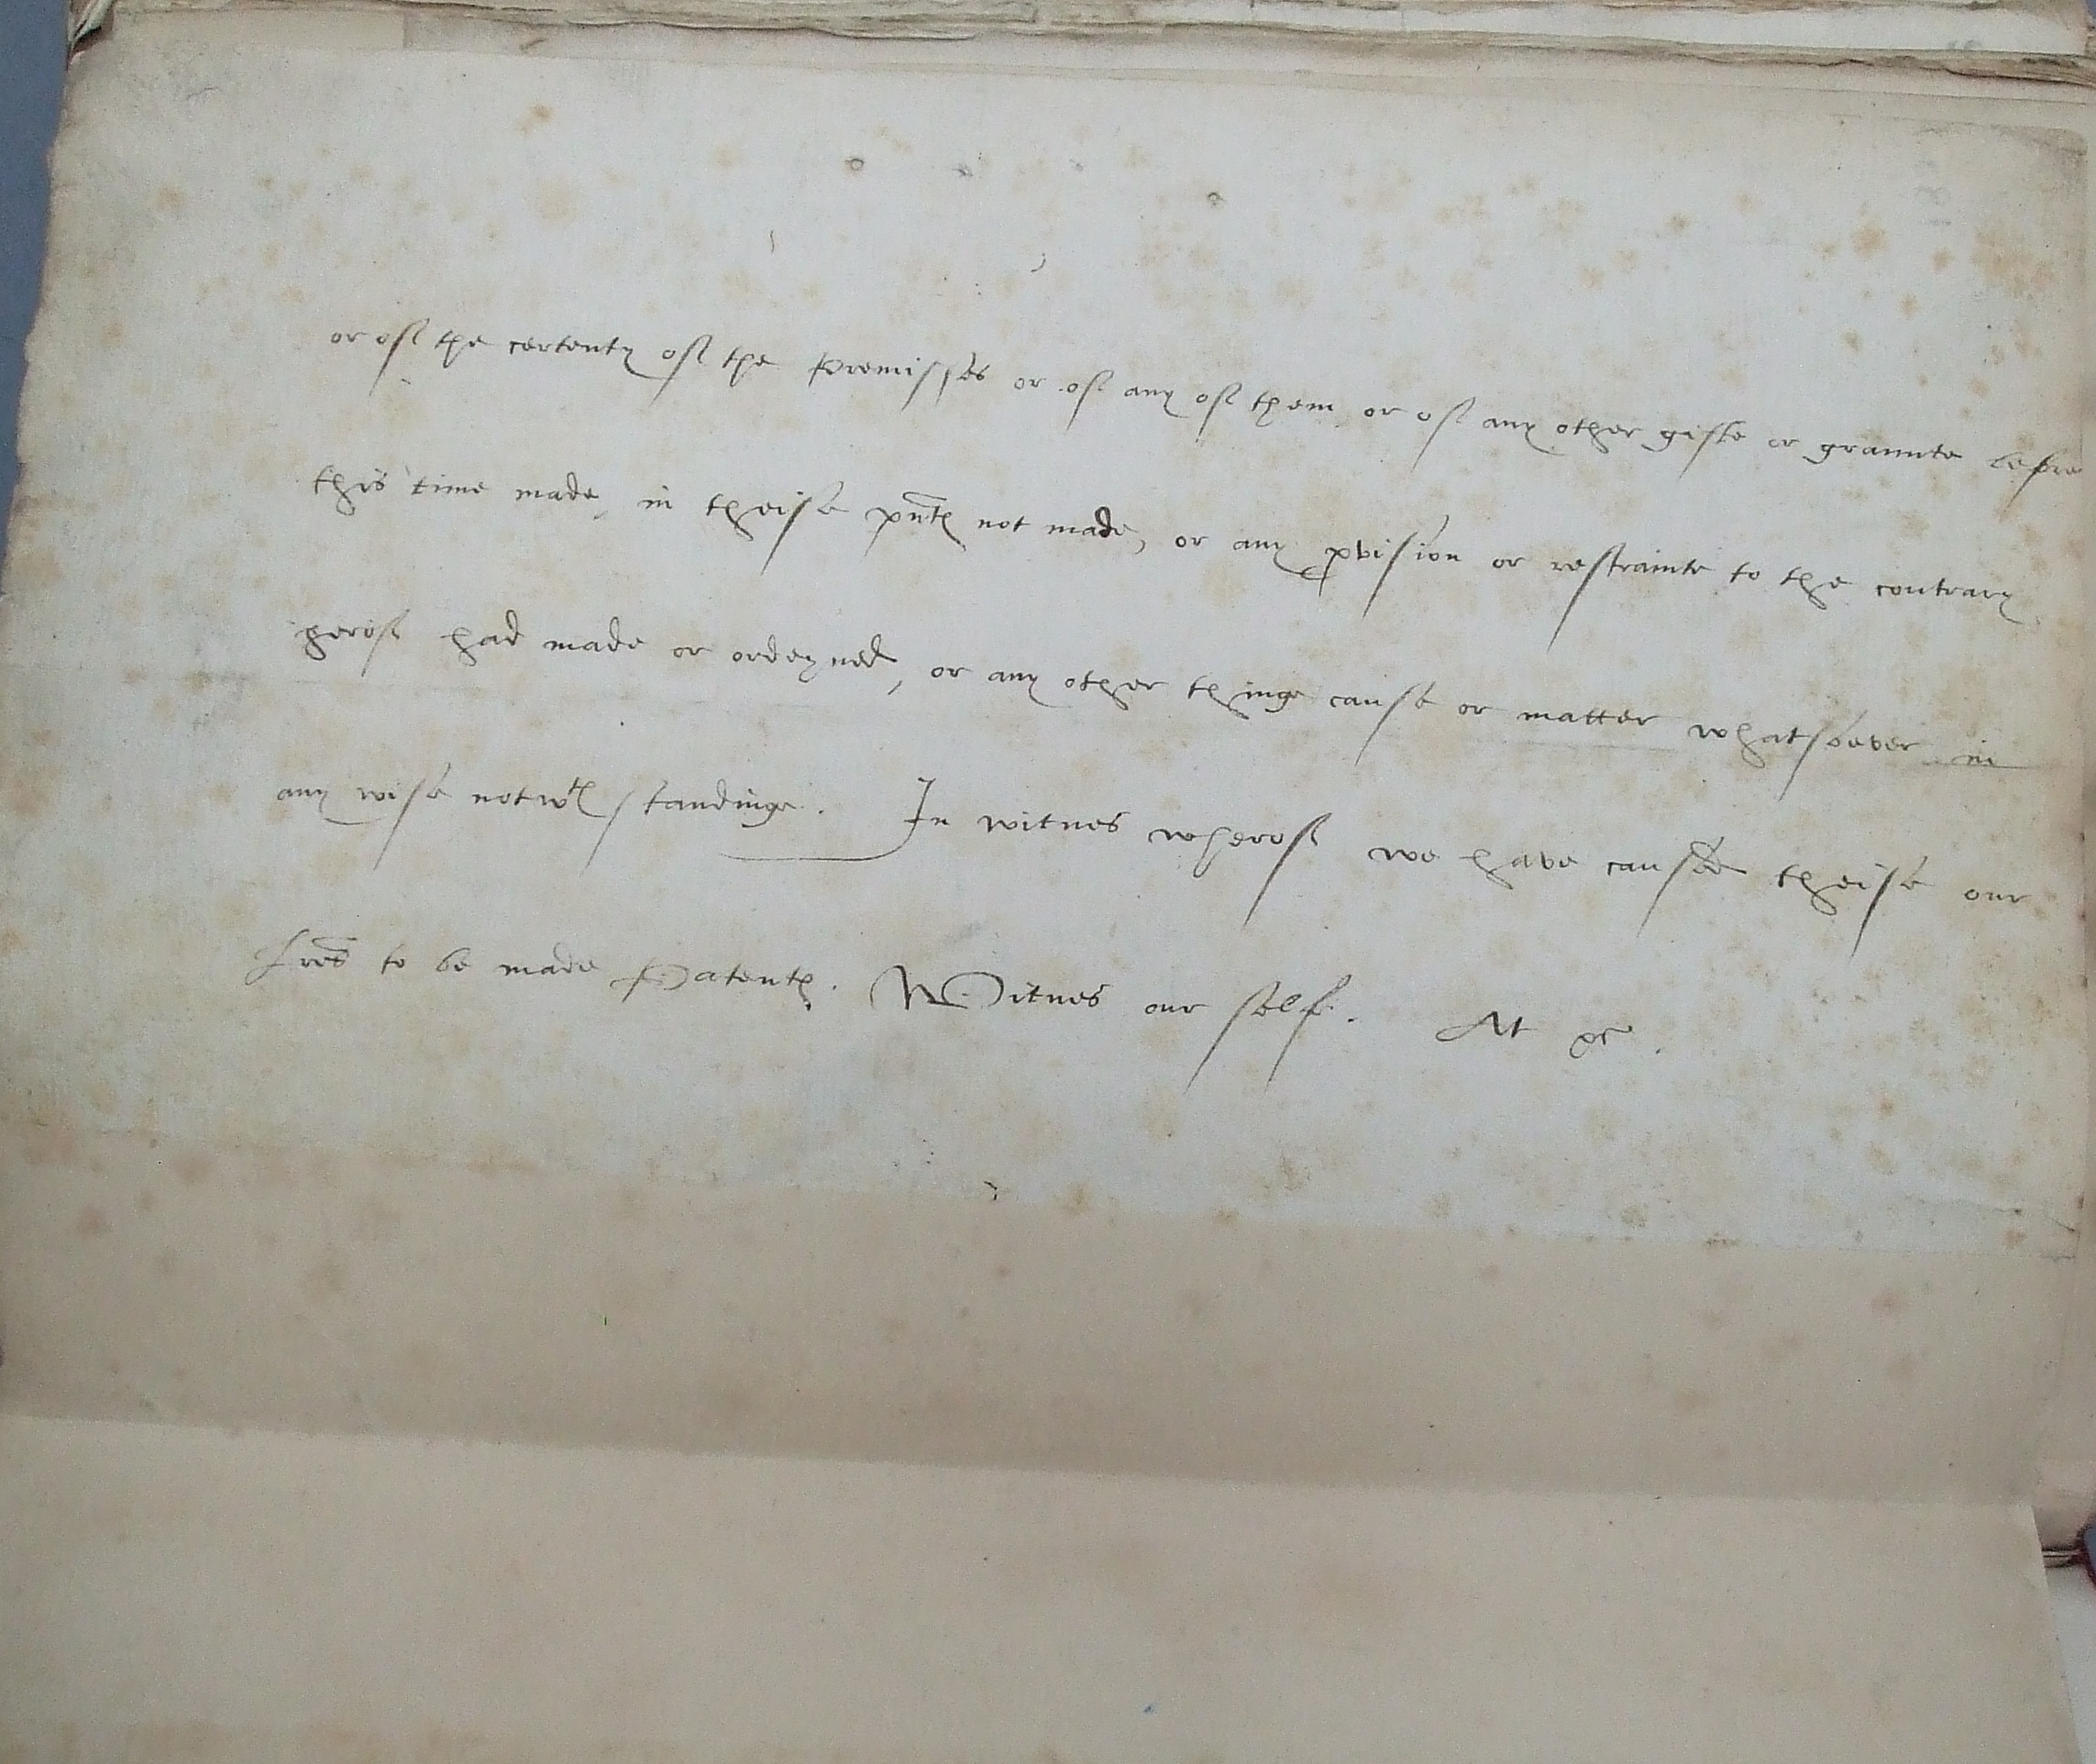 or of the certenty of the Premisses or of any of them or of any other gifte or graunte before
this time made, in theise pnts not made, or any pvision or restrainte to the contrary
herof had made or ordeyned, or any other thinge cause or matter whatsoever in
any wise notwth standinge. In witnes wherof we have caused theise our
Lres to be made Patents. Witnes our self. At &c.